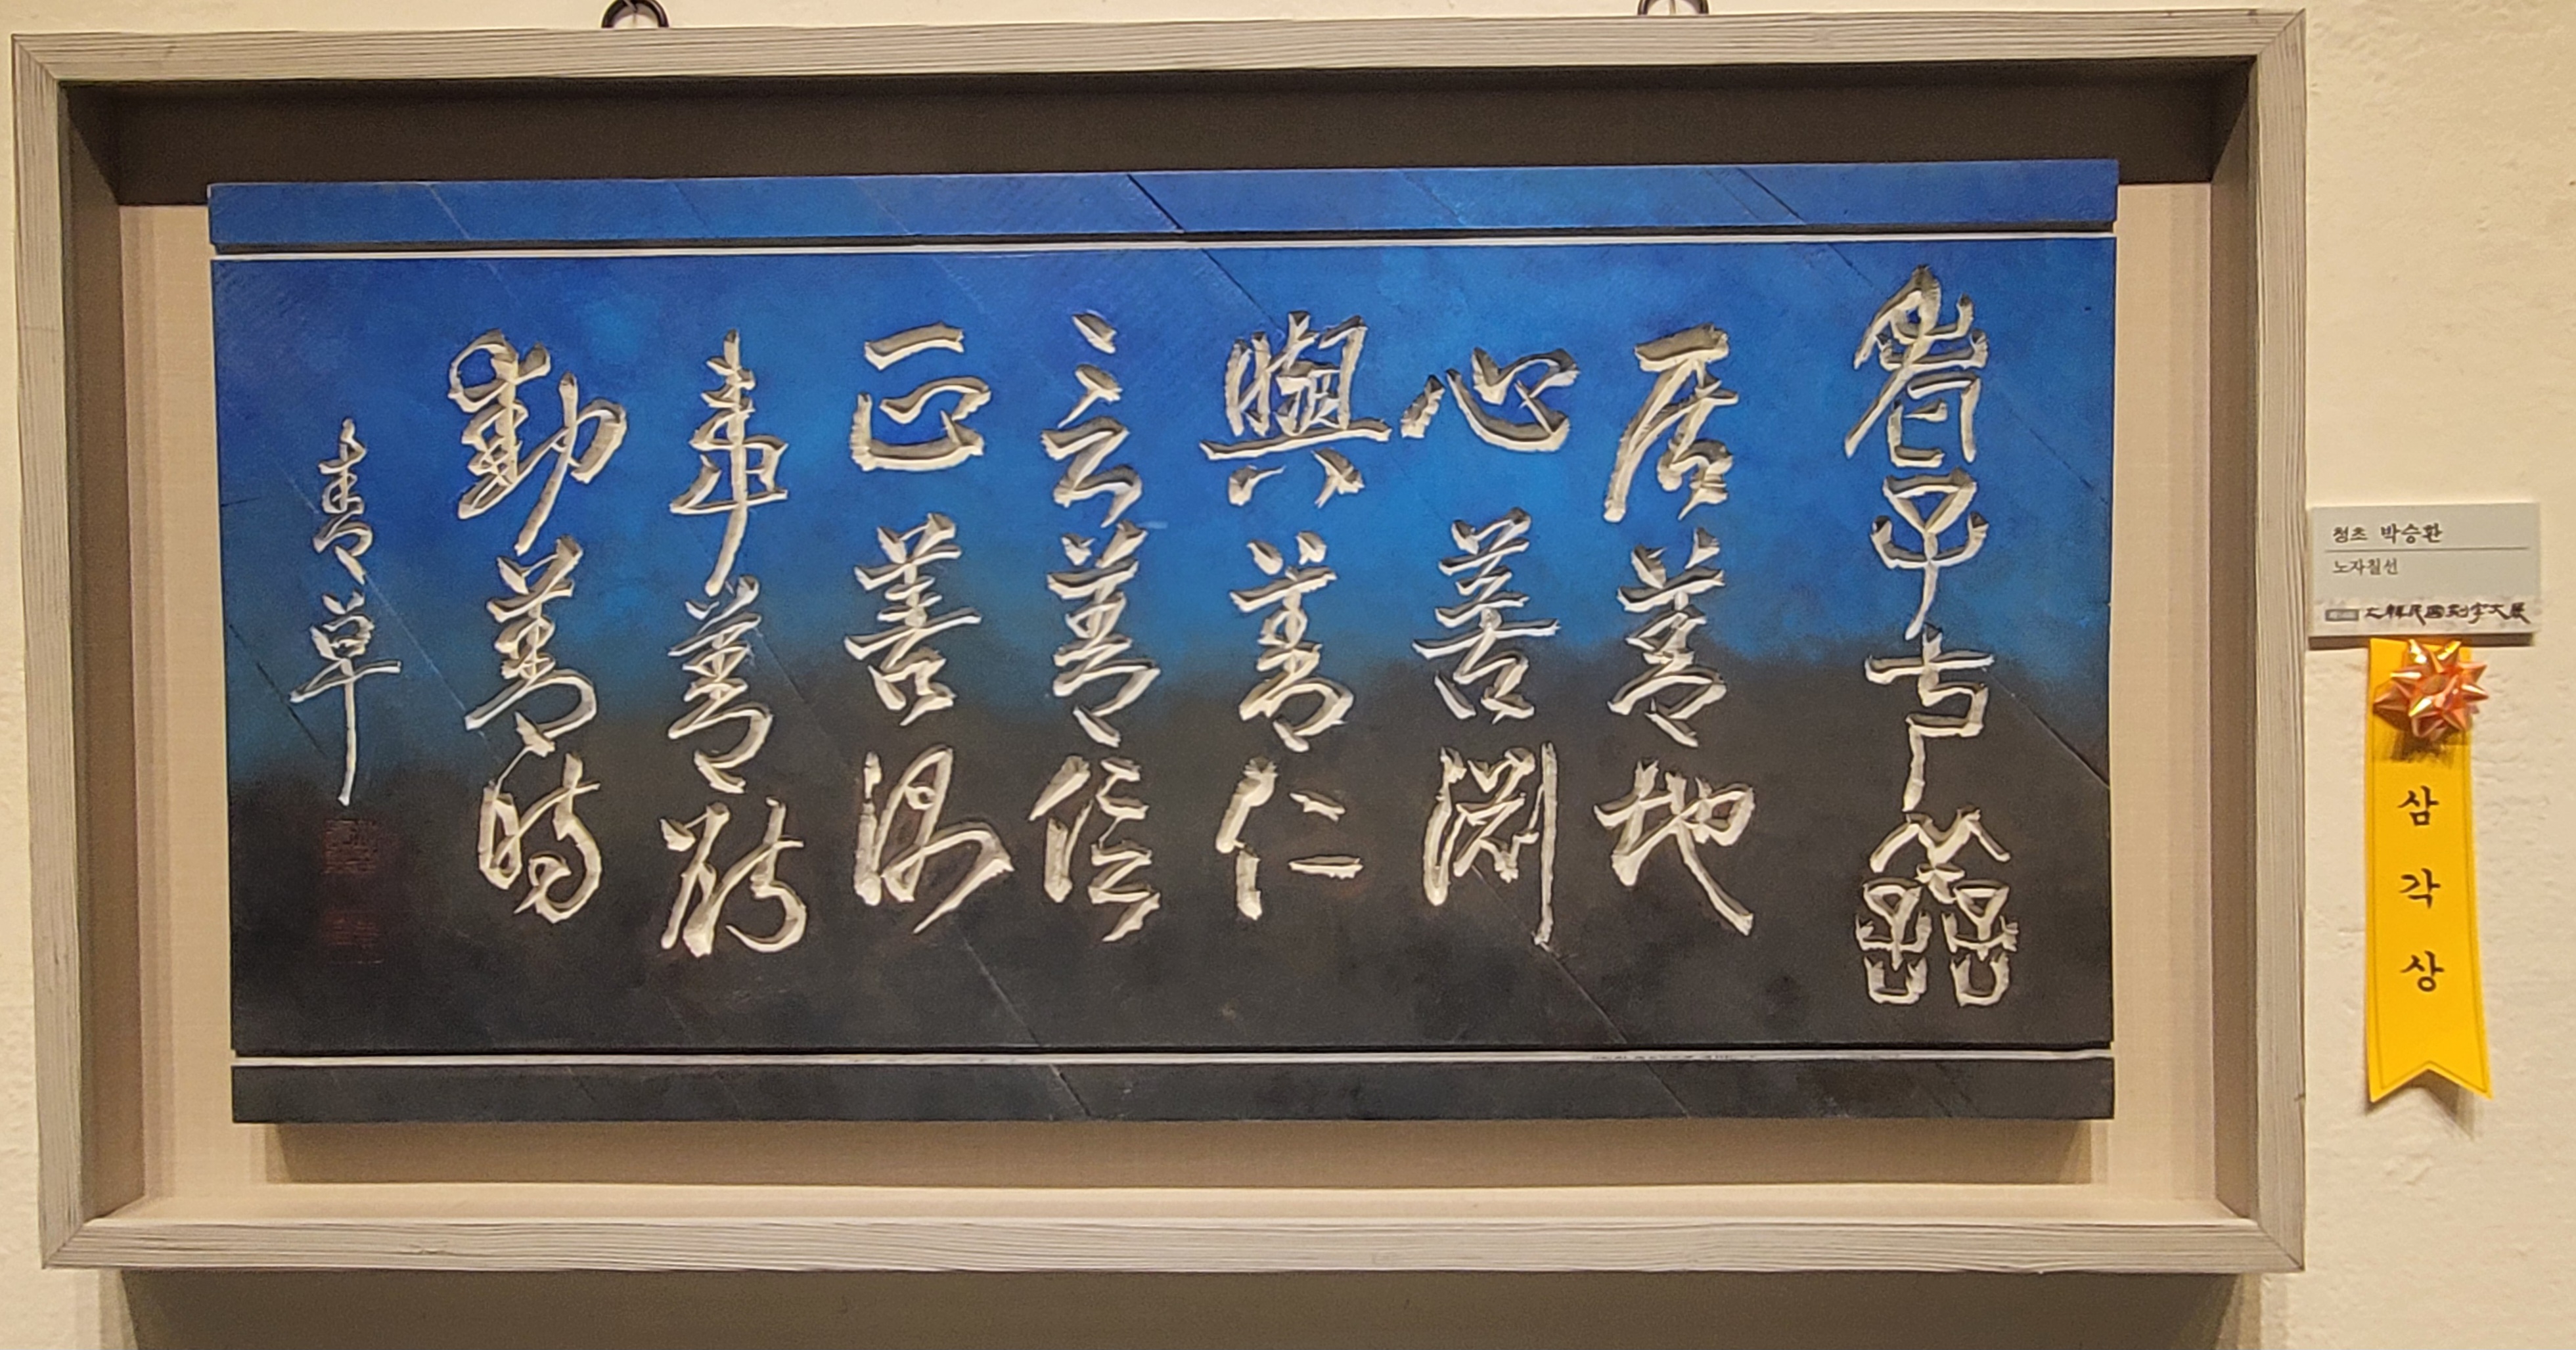 老子七善
居善地
心善淵
與善仁
言善信
正善治
事善能
動善時
靑草
청초 박승환
노자칠선
大韓民國刻字大展
삼각상